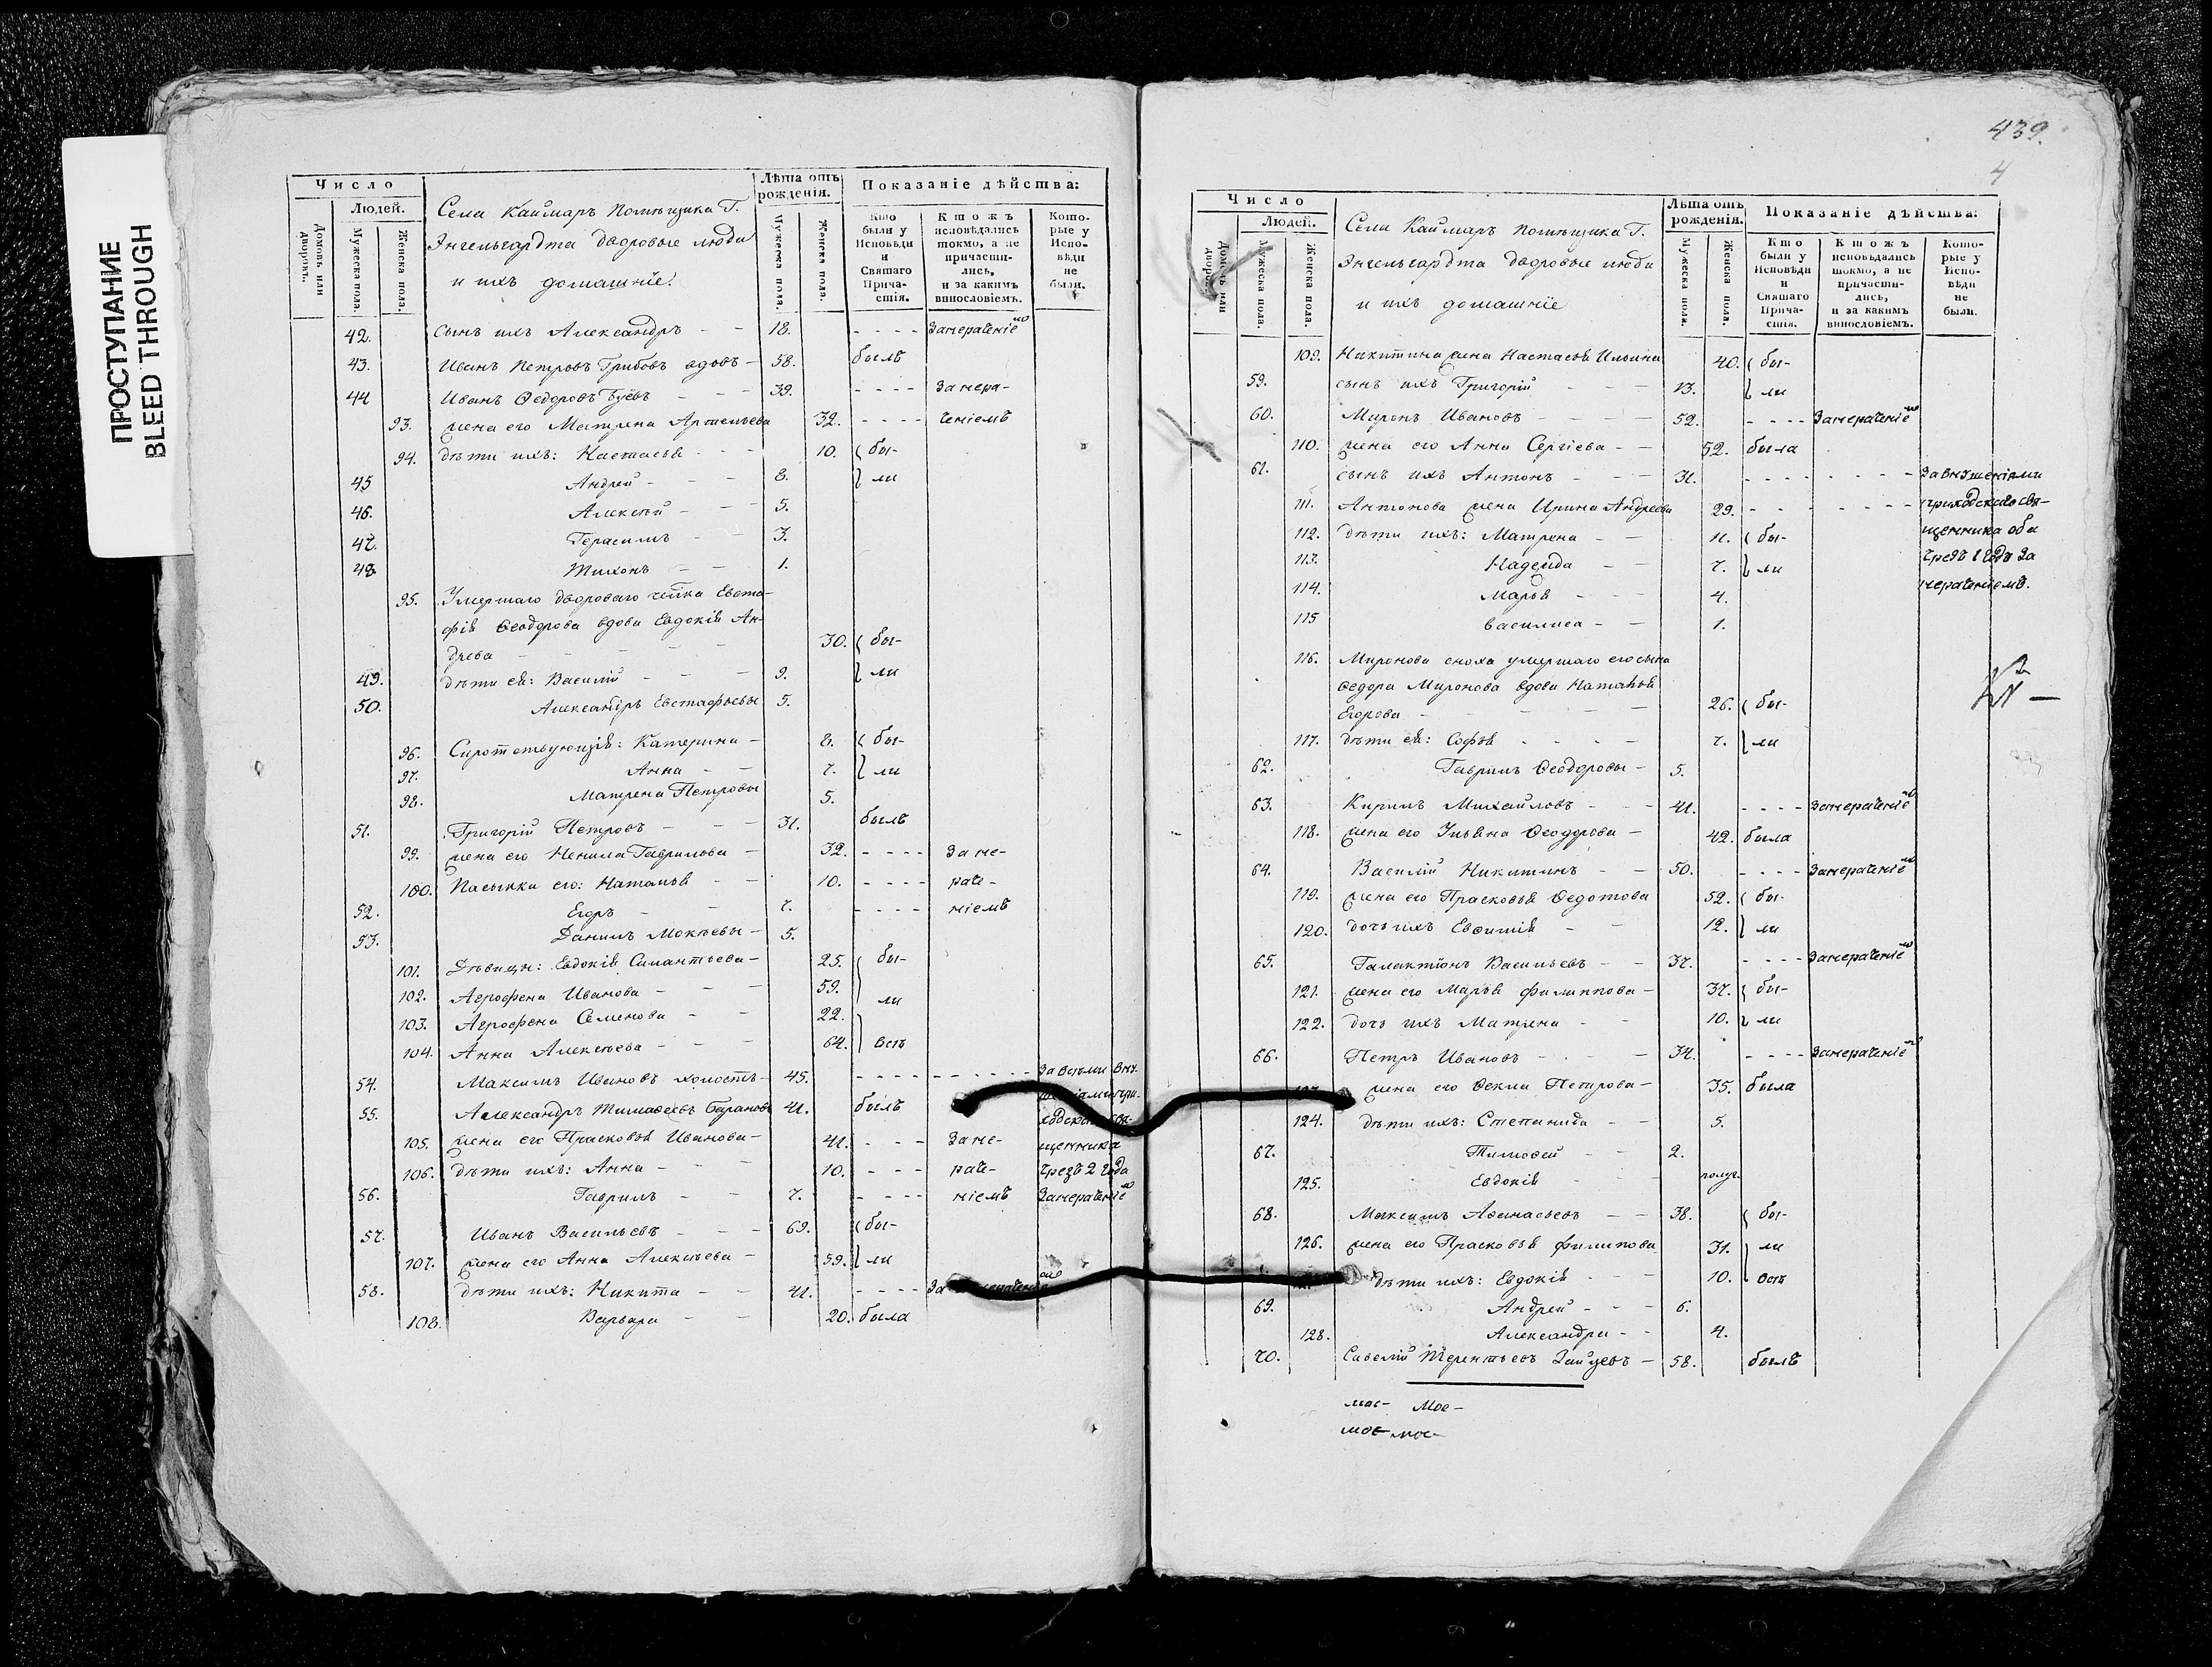 ПРОСТУПАНИЕ
BLEED THROUGH
Число
Людей.
Домовъ или дворовъ.
Мужеска пола.
Женска пола.
Села Каймаръ Помѣщика Г.
Энгельгардта дворовые люди
и ихъ домашніе.
Лѣта отъ рожденія.
Мужеска пола.
Женска пола.
Показаніе дѣйства:
Кто были у Исповѣди и Святаго Причастія.
Ктожъ исповѣдались токмо, а не причастились, и за какимъ винословіемъ.
Которые у Исповѣди не были.
42. сынъ ихъ Александръ - - 18. - - - - Занераченіемъ
43. Иванъ Петровъ Грибовъ вдовъ - 58. былъ
44 Иванъ Ѳедоровъ - - 39. - - - - Занера-
93. жена его Матрена Артемьева 32. - - - - ченіемъ
94. дѣти ихъ: Настасья - - 10. бы-
45 Андрей - - - 8. ли
46. Алексѣй - - - 5.
47. Герасимъ - - 3.
48. Тихонъ - - 1.
95. Умершаго двороваго чѣлка Евста-
фія Ѳеодорова вдова Евдокія Ан-
дреева - - - - - 30. бы-
49. дѣти ея: Василій - - - 9. ли
50. Александръ Евстафьевы 5.
96. Сиротствующія: Катерина - 8. бы-
97. Анна - - 7. ли
98. Матрена Петровы 5.
51. Григорій Петровъ - - - 31. былъ
99. жена его Ненила Гаврилова - 32. - - - - Зане-
100. Пасынки его: Наталья - - 10. - - - - раче-
52. Егоръ - - 7. - - - - ніемъ
53. Данилъ Мокѣевы - 5.
101. Дѣвицы: Евдокія Силантьева - 25. бы-
102. Агрофена Иванова - - - 59. ли
103. Агрофена Семенова - - 22.
104. Анна Алексѣева - - - 64. всѣ
54. Максимъ Ивановъ холостъ - 45. - - - - - - - - - За всѣми вну-
55. Александръ Тимофеевъ Барановъ 41. былъ
105. жена его Прасковья Иванова - 41. - - - Зане- щенника
106. дѣти ихъ: Анна - - - 10. - - - раче- чрезъ 2 года
56. Гаврилъ - - 7. - - - - ніемъ Занераченіемъ
57. Иванъ Васильевъ - - - 69. бы-
107. жена его Анна Алексѣева - 59. ли
58. дѣти ихъ: Никита - - 41. - - - - За
108. Варвара - - 20. была
439.
4
Число
Людей.
Мужеска пола.
Женска пола.
Села Каймаръ помѣщика Г.
Энгельгардта дворовые люди
и ихъ домашніе
Лѣта отъ рожденія.
Мужеска пола.
Женска пола.
Показаніе дѣйства:
Кто были у Исповѣди и Святаго Причастія.
Ктожъ исповѣдались токмо, а не причастились, и за какимъ винословіемъ.
Которые у Исповѣди не были.
109. Никитина жена Настасья Ильина 40. бы-
59. сынъ ихъ Григорій - - - 13. ли
60. Миронъ Ивановъ - - - - 52. - - - - Занераченіемъ
110. жена его Анна Сергіева - - 52. была
61. сынъ ихъ Антонъ - - - 31. - - - - - - - - За внушеніями
111. Антонова жена Ирина Андреева 29. - - - - - - - приходскаго свя-
112. дѣти ихъ: Матрена - - 11. бы- щенника оба
113. Надежда - - 7. ли чрезъ 1 годъ за
114. Марья - - - 4. нераченіемъ.
115 Василиса - - 1.
116. Миронова сноха умершаго его сына
Ѳедора Миронова вдова Наталья
Егорова - - - - - 26. бы-
117. дѣти ея: Софья - - - - 7. ли
62. Гаврилъ Ѳеодоровы - 5.
63. Кирилъ Михайловъ - - - 41. - - - - Занераченіемъ
118. жена его Ульяна Ѳеодорова - 42. была
64. Василій Никитинъ - - 50. - - - - Занераченіемъ
119. жена его Прасковья Ѳедотова 52. бы-
120. дочь ихъ Евѳимія - - 12. ли
65. Галактіонъ Васильевъ - - 37. - - - - Занераченіемъ
121. жена его Марья Филиппова - 37. бы-
122. дочь ихъ Матрена - - 10. ли
66. Петръ Ивановъ - - - 34. - - - - Занераченіемъ
жена его Ѳекла Петрова - 35. была
124. дѣти ихъ: Степанида - - 5.
67. Тимоѳей - - 2.
125. Евдокія - - - полуг.
68. Максимъ Аѳанасьевъ - - 38. бы-
126. жена его Прасковья Филипова 31. ли
дѣти ихъ: Евдокія - - - 10. всѣ
69. Андрей - - - 6.
128. Александра - - 4.
70. Савелій Терентьевъ Зайцевъ - 58. былъ
мое- мое-
мое- мое-